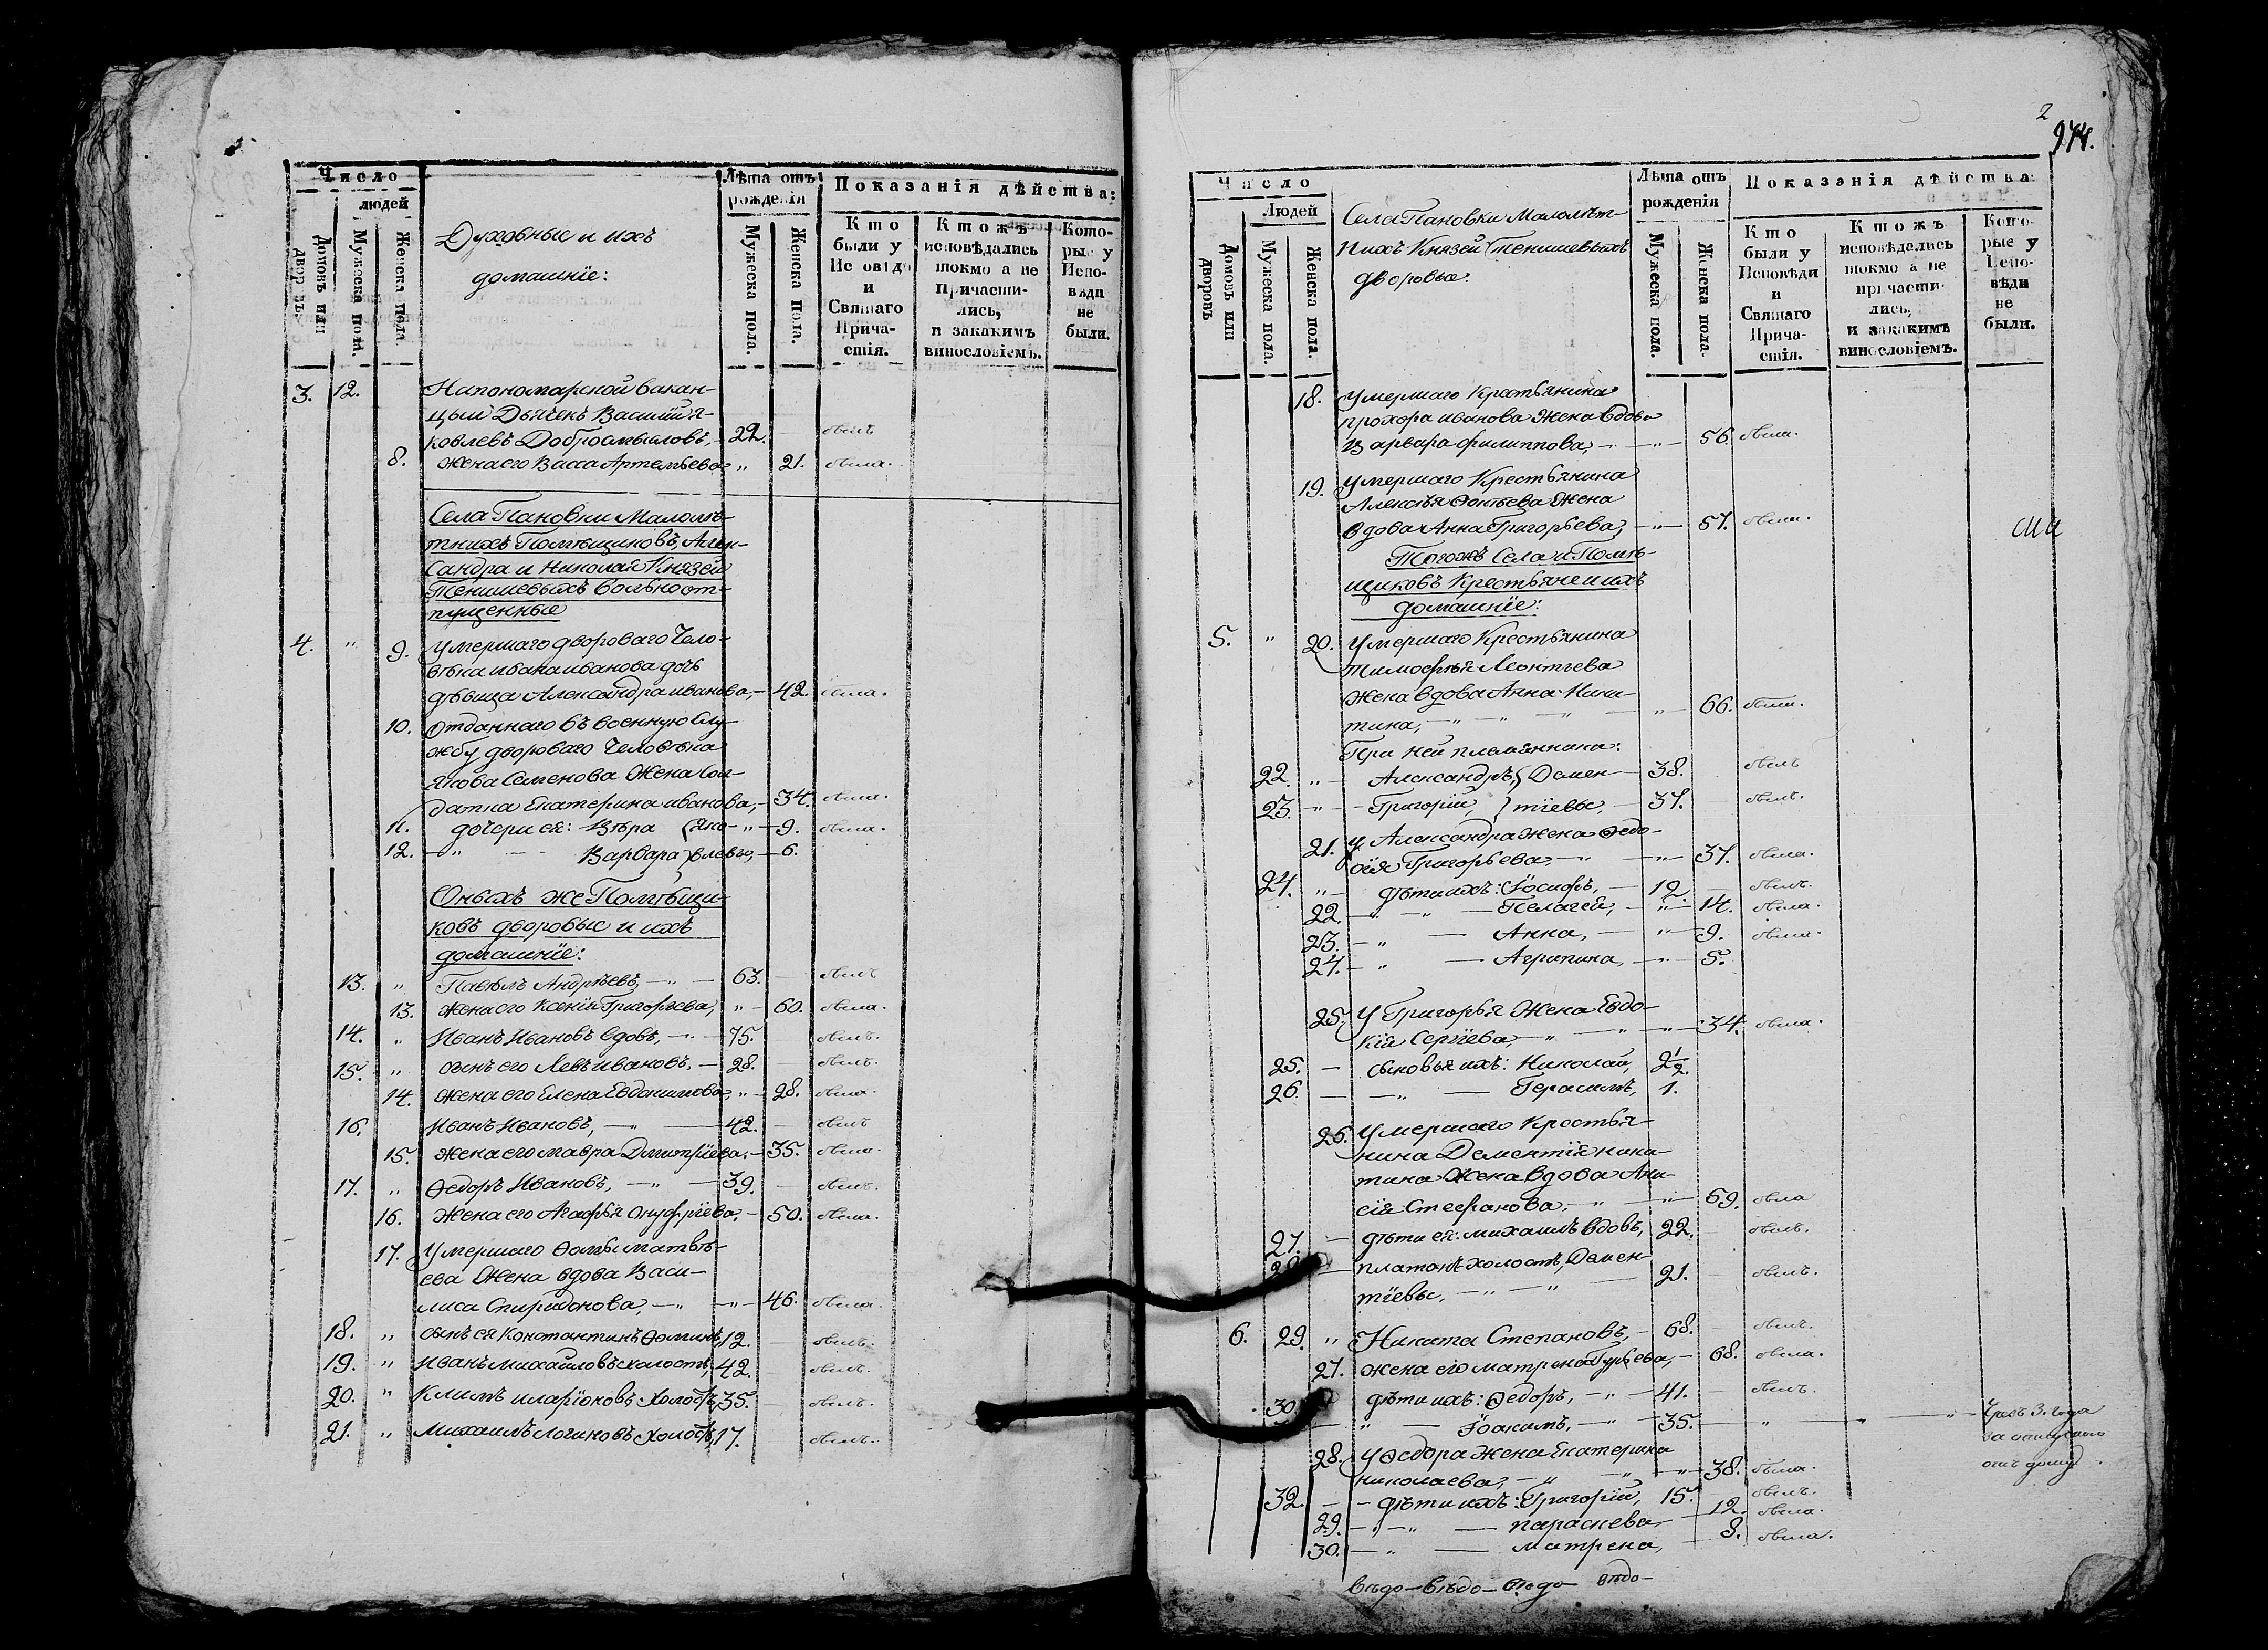 Число
людей
Домовъ или дворовъ
Мужеска пола.
Женска пола
Духовные и ихъ
домашніе:
Лѣта отъ
рожденія
Мужеска пола.
Женска пола.
Показанія дѣйства:
Кто были у Исповѣди и Святаго Причастія.
Ктожъ исповѣдались токмо а не причастились, и закакимъ винословіемъ.
Которые у Исповѣди не были.
3. 12. Напономарской вакан-
цыи Дьячекъ Василій Я-
ковлевъ Добросмысловъ, 22. былъ
8. жена его Васса Артемьева, " 21. была.
Села Пановки Малолѣ-
тнихъ Помѣщиковъ, Алек-
сандра и Николая Князей
Тенишевыхъ вольноот-
пущенные
4. " 9. Умершаго двороваго Чело-
вѣка ивана иванова дочь
дѣвица Александра иванова, - 42. была.
10. Отданнаго въ военную слу-
жбу двороваго Человѣка
Якова Семенова Жена Сол-
датка Екатерина иванова, - 34. была.
11. дочери ея: Вѣра Яко- " - 9. была.
12. - " - Варвара влевы, - 6.
Оныхъ же Помѣщи-
ковъ дворовые и ихъ
домашніе:
13. " Павелъ Андрѣевъ, - " - 63. былъ
13. жена его Ксенія Григорьева, " - 60. была.
14. " Иванъ Ивановъ вдовъ, - " - 75. былъ.
15. " сынъ его Левъ ивановъ, - 28. былъ.
14. жена его Елена Евдокимова, " - 28. была.
16. Иванъ Ивановъ, - " - 42. былъ
15. жена его мавра Дмитріева, - 35. была.
17. " Ѳедоръ Ивановъ, - " - 39. былъ.
16. Жена его Агафья Онуфріева, - 50. была.
17. Умершаго Ѳомы матвѣ-
ева Жена вдова Васи-
лиса Спиридонова, - " - " - 46. была.
18. " сынъ ея Константинъ Ѳоминъ, 12. былъ.
19. " Иванъ михайловъ холостъ, 42. былъ.
20. " Климъ иларіоновъ Холостъ, 35. былъ.
21. " Михаилъ логиновъ Холостъ, 17. былъ.
2
974.
Число
Людей
Домовъ или дворовъ
Мужеска пола.
Женска пола.
Села Пановки Малолѣт-
нихъ Князей Тенишевыхъ
дворовые:
Лѣта отъ
рожденія
Мужеска пола.
Женска пола.
Показанія дѣйства:
Кто были у Исповѣди и Святаго Причастія.
Ктожъ исповѣдались токмо а не причастились, и закакимъ винословіемъ.
Которые у Исповѣди не были.
18. Умершаго Крестьянина
прохора иванова Жена вдова
Варвара филиппова, - " - 56. была.
19. Умершаго Крестьянина
Алексѣя Жена
вдова Анна Григорьева, - " - 57. была.
Тогожъ Села и Помѣ-
щиковъ Крестьяне и ихъ
домашніе:
5. " 20. Умершаго Крестьянина
тимофѣя Леонтьева
Жена вдова Анна Ники-
тина, - " - " - " - " - 66. была.
При ней племянники:
22. " - Александръ, Демен- - 38. былъ
23. " - Григорій, тіевы, - 37. былъ.
21. У Александра Жена Ѳедо-
сія Григорьева, - " - " - 37. была.
24. " - дѣти ихъ: Іосифъ, - 12. былъ.
22. - " - " - Пелагея, - " - 14. была.
23. - " - Анна, - " - 9. была.
24. - " - Агрипина, - " - 5.
25. У Григорья Жена Евдо-
кія Сергіева, - " - " - " - 34. была.
25. - сыновья ихъ: Николай, 2 1/2.
26. - - " - Герасимъ, 1.
26. Умершаго Крестья-
нина Дементія ники-
тина Жена вдова Ани-
сія Стефанова, - " - " - 69. была
27. - дѣти ея: михаилъ вдовъ, 22. былъ.
- платонъ холостъ, Демен-
тіевы, - " - " - 21. былъ.
6. 29. " Никита Степановъ, - 68. былъ.
27. жена его матрена Гурьева, - 68. была.
30. дѣти ихъ: Ѳедоръ, - " - 41. былъ.
" - Іоакимъ, - " - 35. - " - " - " - Чрезъ 3. года
за отлучкою
отъ дому.
28. У Ѳедора Жена Екатерина
николаева, - " - " - " - 38. была.
32. - - дѣти ихъ: Григорій, 15. былъ.
29. - " - " - параскева - 12. была.
30. - " - матрена, - 8. была.
вѣдо- вѣдо- вѣдо- вѣдо-